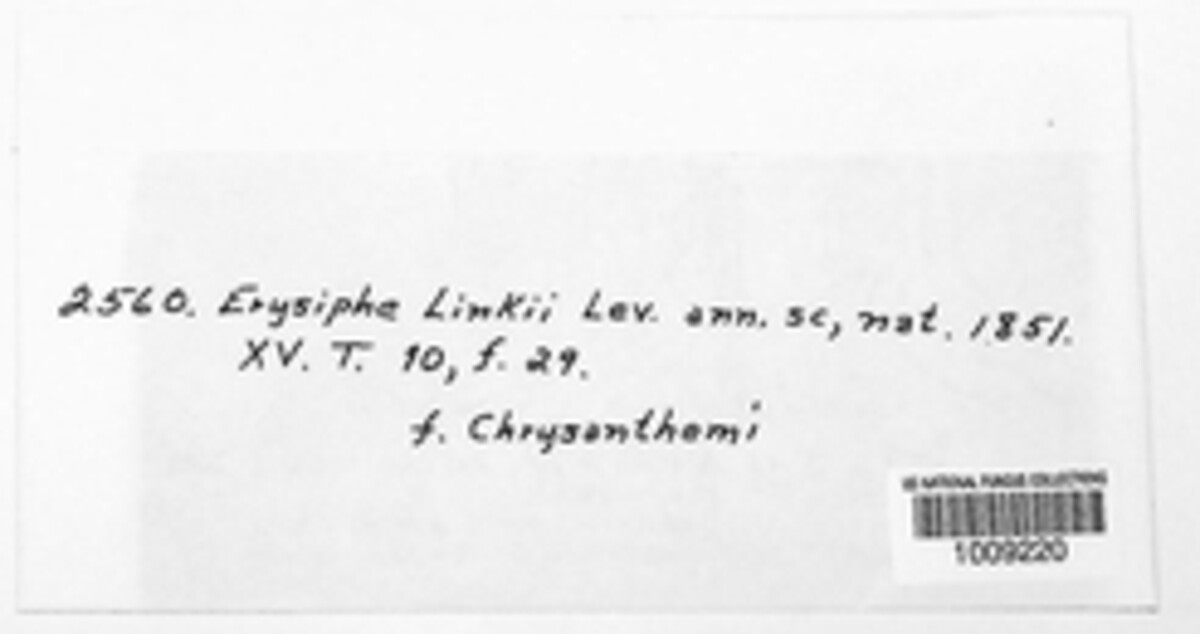 2560. Erysiphe Linkii Lev. ann. sc, nat. 1851.
XV. T. 10, f. 29.
f. Chrysanthemi
US NATIONAL FUNGUS COLLECTIONS
1009220